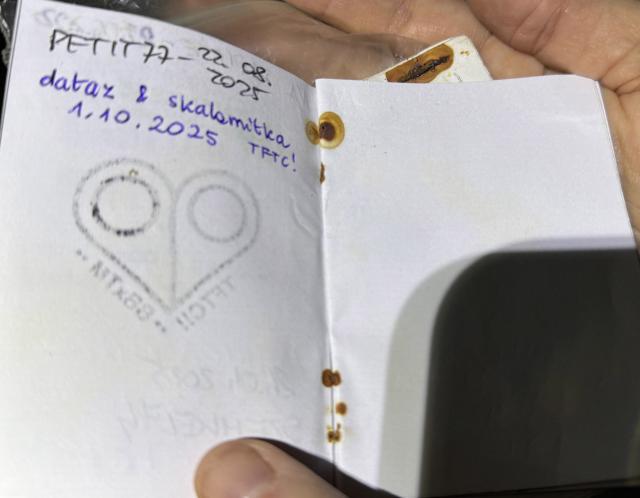 PETIT77 - 22. 08.
2025
dataz & skalomitka
1.10.2025 TFTC!
TFTC!!